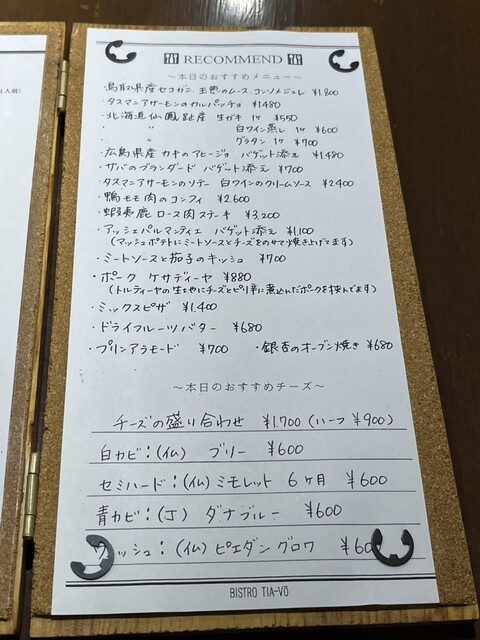 RECOMMEND
～本日のおすすめメニュー～
・鳥取県産セコガニ 玉葱のムース コンソメジュレ ¥1.800
・タスマニアサーモンのカルパッチョ ¥1480
・北海道仙鳳趾産 生ガキ 1ケ ¥550
・ 〃 白ワイン蒸し 1ケ ¥600
・ 〃 グラタン 1ケ ¥700
・広島県産 カキのアヒージョ バゲット添え ¥1.480
・サバのブランダード バゲット添え ¥700
・タスマニアサーモンのソテー 白ワインのクリームソース ¥2400
・鴨モモ肉のコンフィ ¥2.600
・蝦夷鹿 ロース肉ステーキ ¥3,200
・アッシェパルマンティエ バゲット添え ¥1,100
(マッシュポテトにミートソースとチーズをのせて焼き上げてます)
・ミートソースと茄子のキッシュ ¥700
・ポーク ケサディーヤ ¥880
(トルティーヤの生地にチーズとピリ辛に煮込んだポークを挟んでます)
・ミックスピザ ¥1.400
・ドライフルーツバター ¥680
・プリンアラモード ¥700 ・銀杏のオーブン焼き ¥680
～本日のおすすめチーズ～
チーズの盛り合わせ ¥1.700 (ハーフ ¥900)
白カビ:(仏) ブリー ¥600
セミハード:(仏) ミモレット 6ヶ月 ¥600
青カビ:(丁) ダナブルー ¥600
ウォッシュ:(仏) ピエダングロワ ¥600
BISTRO TIA-VŌ